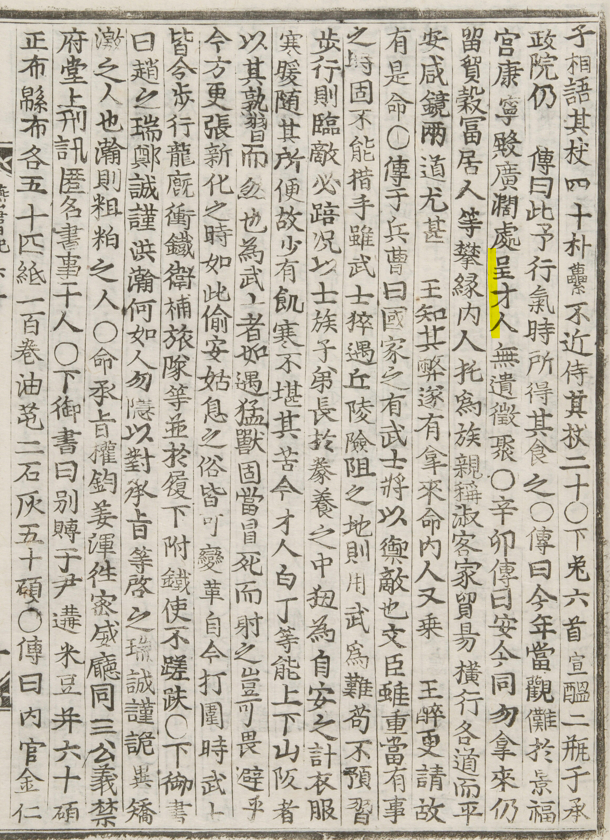 子相語其杖四十朴虌不近侍其杖二十〇下兎六首宣醞二甁于承
政院仍 傳曰此予行氣時所得其食之〇傳曰今年當觀儺於景福
宮康寧殿廣濶處呈才人無遺徵聚〇辛卯傳曰安今同勿拿來仍
留貿穀冨居人等攀緣内人托爲族親稱淑客家貿易橫行各道而平
安咸鏡兩道尤甚 王知其弊遂有拿來命内人又乗 王醉更請故
有是命〇傳于兵曹曰國家之有武士將以禦敵也文臣雖重當有事
之時固不能措手雖武士猝遇丘陵險阻之地則用武爲難苟不預習
歩行則臨敵必踣况以士族子弟長於豢養之中狃為自安之計衣服
寒暖隨其所便故少有飢寒不堪其苦今才人白丁等能上下山阪者
以其孰習而然也為武士者如遇猛獸固當冒死而射之豈可畏避乎
今方更張新化之時如此偷安姑息之俗皆可變革自今打圍時武士
皆令歩行龍厩衝鐵衛補旅隊等並於履下附鐵使不蹉跌〇下御書
曰趙之瑞鄭誠謹洪瀚何如人勿隱以對承旨等啓之瑞誠謹詭異矯
激之人也瀚則粗粕之人〇命承旨權鈞姜渾徃宻威廳同三公義禁
府堂上刑訊匿名書事干人〇下御書曰別賻于尹遘米豆并六十碩
正布緜布各五十匹紙一百卷油芚二石灰五十碩〇傳曰内官金仁